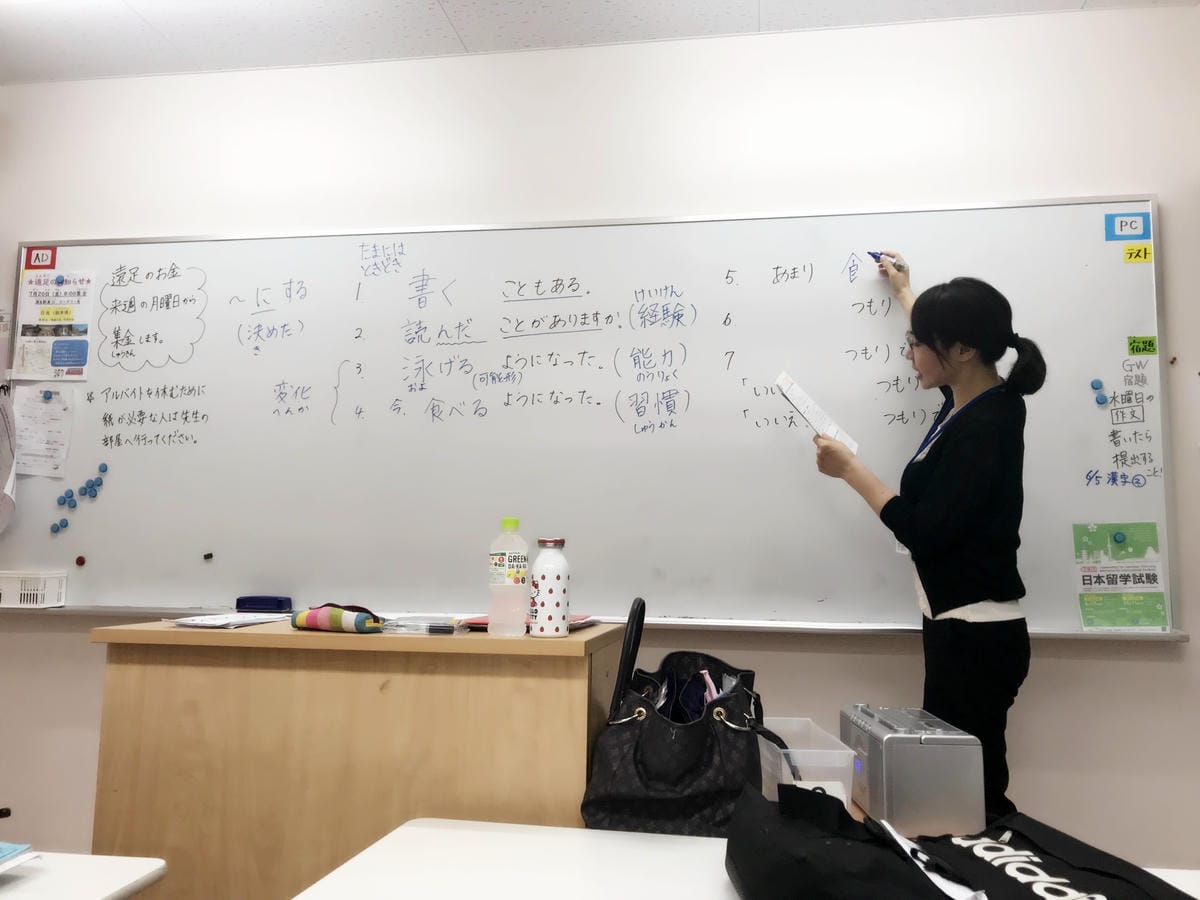 AD
★遠足のお知らせ★
7月20日(金)8:00集合
遠足のお金
来週の月曜日から
集金します。
しゅうきん
アルバイトを休むために
紙が必要な人は先生の
部屋へ行ってください。
〜にする
(決めた)
き
変化
へんか
たまには
ときどき
1. 書く こともある。
2. 読んだ ことがありますか。(経験)
けいけん
3. 泳げる ようになった。(能力)
およ
(可能形)
のうりょく
4. 今、食べる ようになった。(習慣)
しゅうかん
5. あまり 食
つもり
6
7 つもり
「いい つもり
「いいえ、 つもり
PC
テスト
宿題
GW
宿題
水曜日の
作文
書いたら
提出する
こと!
6/5 漢字②
日本留学試験
GREEN
DA・KA・RA
adidas